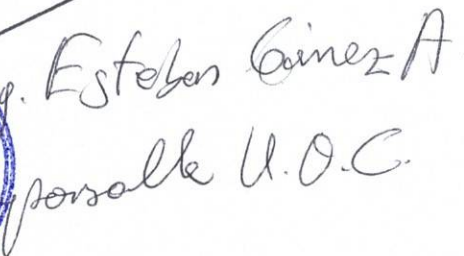 g. Esteban Gómez A
ponsable U.O.C.